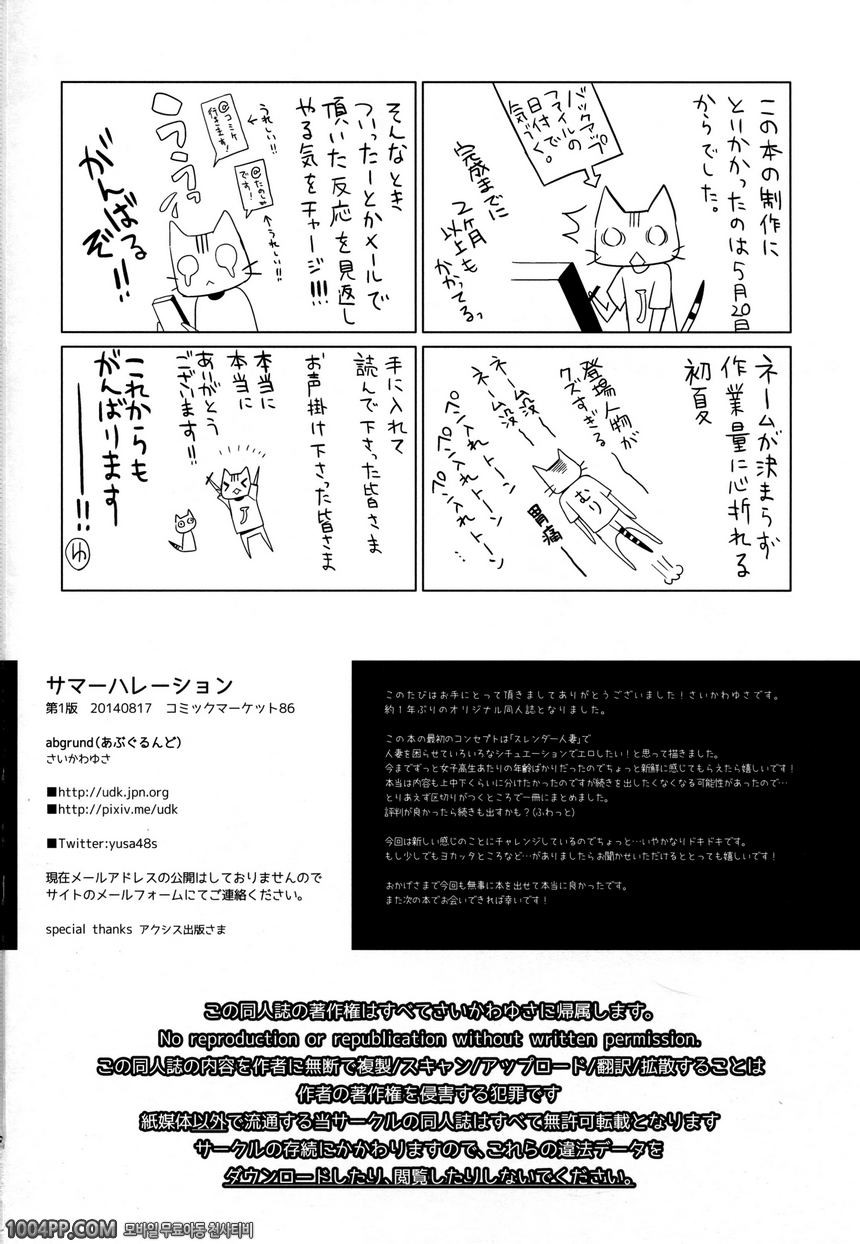 この本の制作に
とりかかったのは5月20日
からでした。
バックアップ
ファイルの
日付で
気づく。
完成までに
2ヶ月
以上も
かかってるっ
そんなとき
ついったーとかメールで
頂いた反応を見返し
やる気をチャージ!!!
うれしい!!
@コミケ
行きます!
@たのしみ
です!
うれしい!!
うっうっ
がんばる
ぞ!!
ネームが決まらず
作業量に心折れる
初夏
登場人物が
クズすぎる
ネーム没〜
ネーム没〜
ペン入れトーン
ペン入れトーン
ペン入れトーン
むり
胃痛
手に入れて
読んで下さった皆さま
お声掛け下さった皆さま
本当に
本当に
ありがとう
ございます!!
J
これからも
がんばります
――!!
ゆ
サマーハレーション
第1版 20140817 コミックマーケット86
abgrund(あぶぐるんど)
さいかわゆさ
■http://udk.jpn.org
■http://pixiv.me/udk
■Twitter:yusa48s
現在メールアドレスの公開はしておりませんので
サイトのメールフォームにてご連絡ください。
special thanks アクシス出版さま
このたびはお手にとって頂きましてありがとうございました!さいかわゆさです。
約1年ぶりのオリジナル同人誌となりました。
この本の最初のコンセプトは「スレンダー人妻」で
人妻を困らせていろいろなシチュエーションでエロしたい!と思って描きました。
今までずっと女子高生あたりの年齢ばかりだったのでちょっと新鮮に感じてもらえたら嬉しいです!
本当は内容も上中下くらいに分けたかったのですが続きを出したくなくなる可能性があったので…
とりあえず区切りがつくところで一冊にまとめました。
評判が良かったら続きも出すかも?(ふわっと)
今回は新しい感じのことにチャレンジしているのでちょっと…いやかなりドキドキです。
もし少しでもヨカッタところなど…がありましたらお聞かせいただけるととっても嬉しいです!
おかげさまで今回も無事に本を出せて本当に良かったです。
また次の本でお会いできれば幸いです!
この同人誌の著作権はすべてさいかわゆさに帰属します。
No reproduction or republication without written permission.
この同人誌の内容を作者に無断で複製/スキャン/アップロード/翻訳/拡散することは
作者の著作権を侵害する犯罪です
紙媒体以外で流通する当サークルの同人誌はすべて無許可転載となります
サークルの存続にかかわりますので、これらの違法データを
ダウンロードしたり、閲覧したりしないでください。
1004PP.COM 모바일 무료야동 천사티비